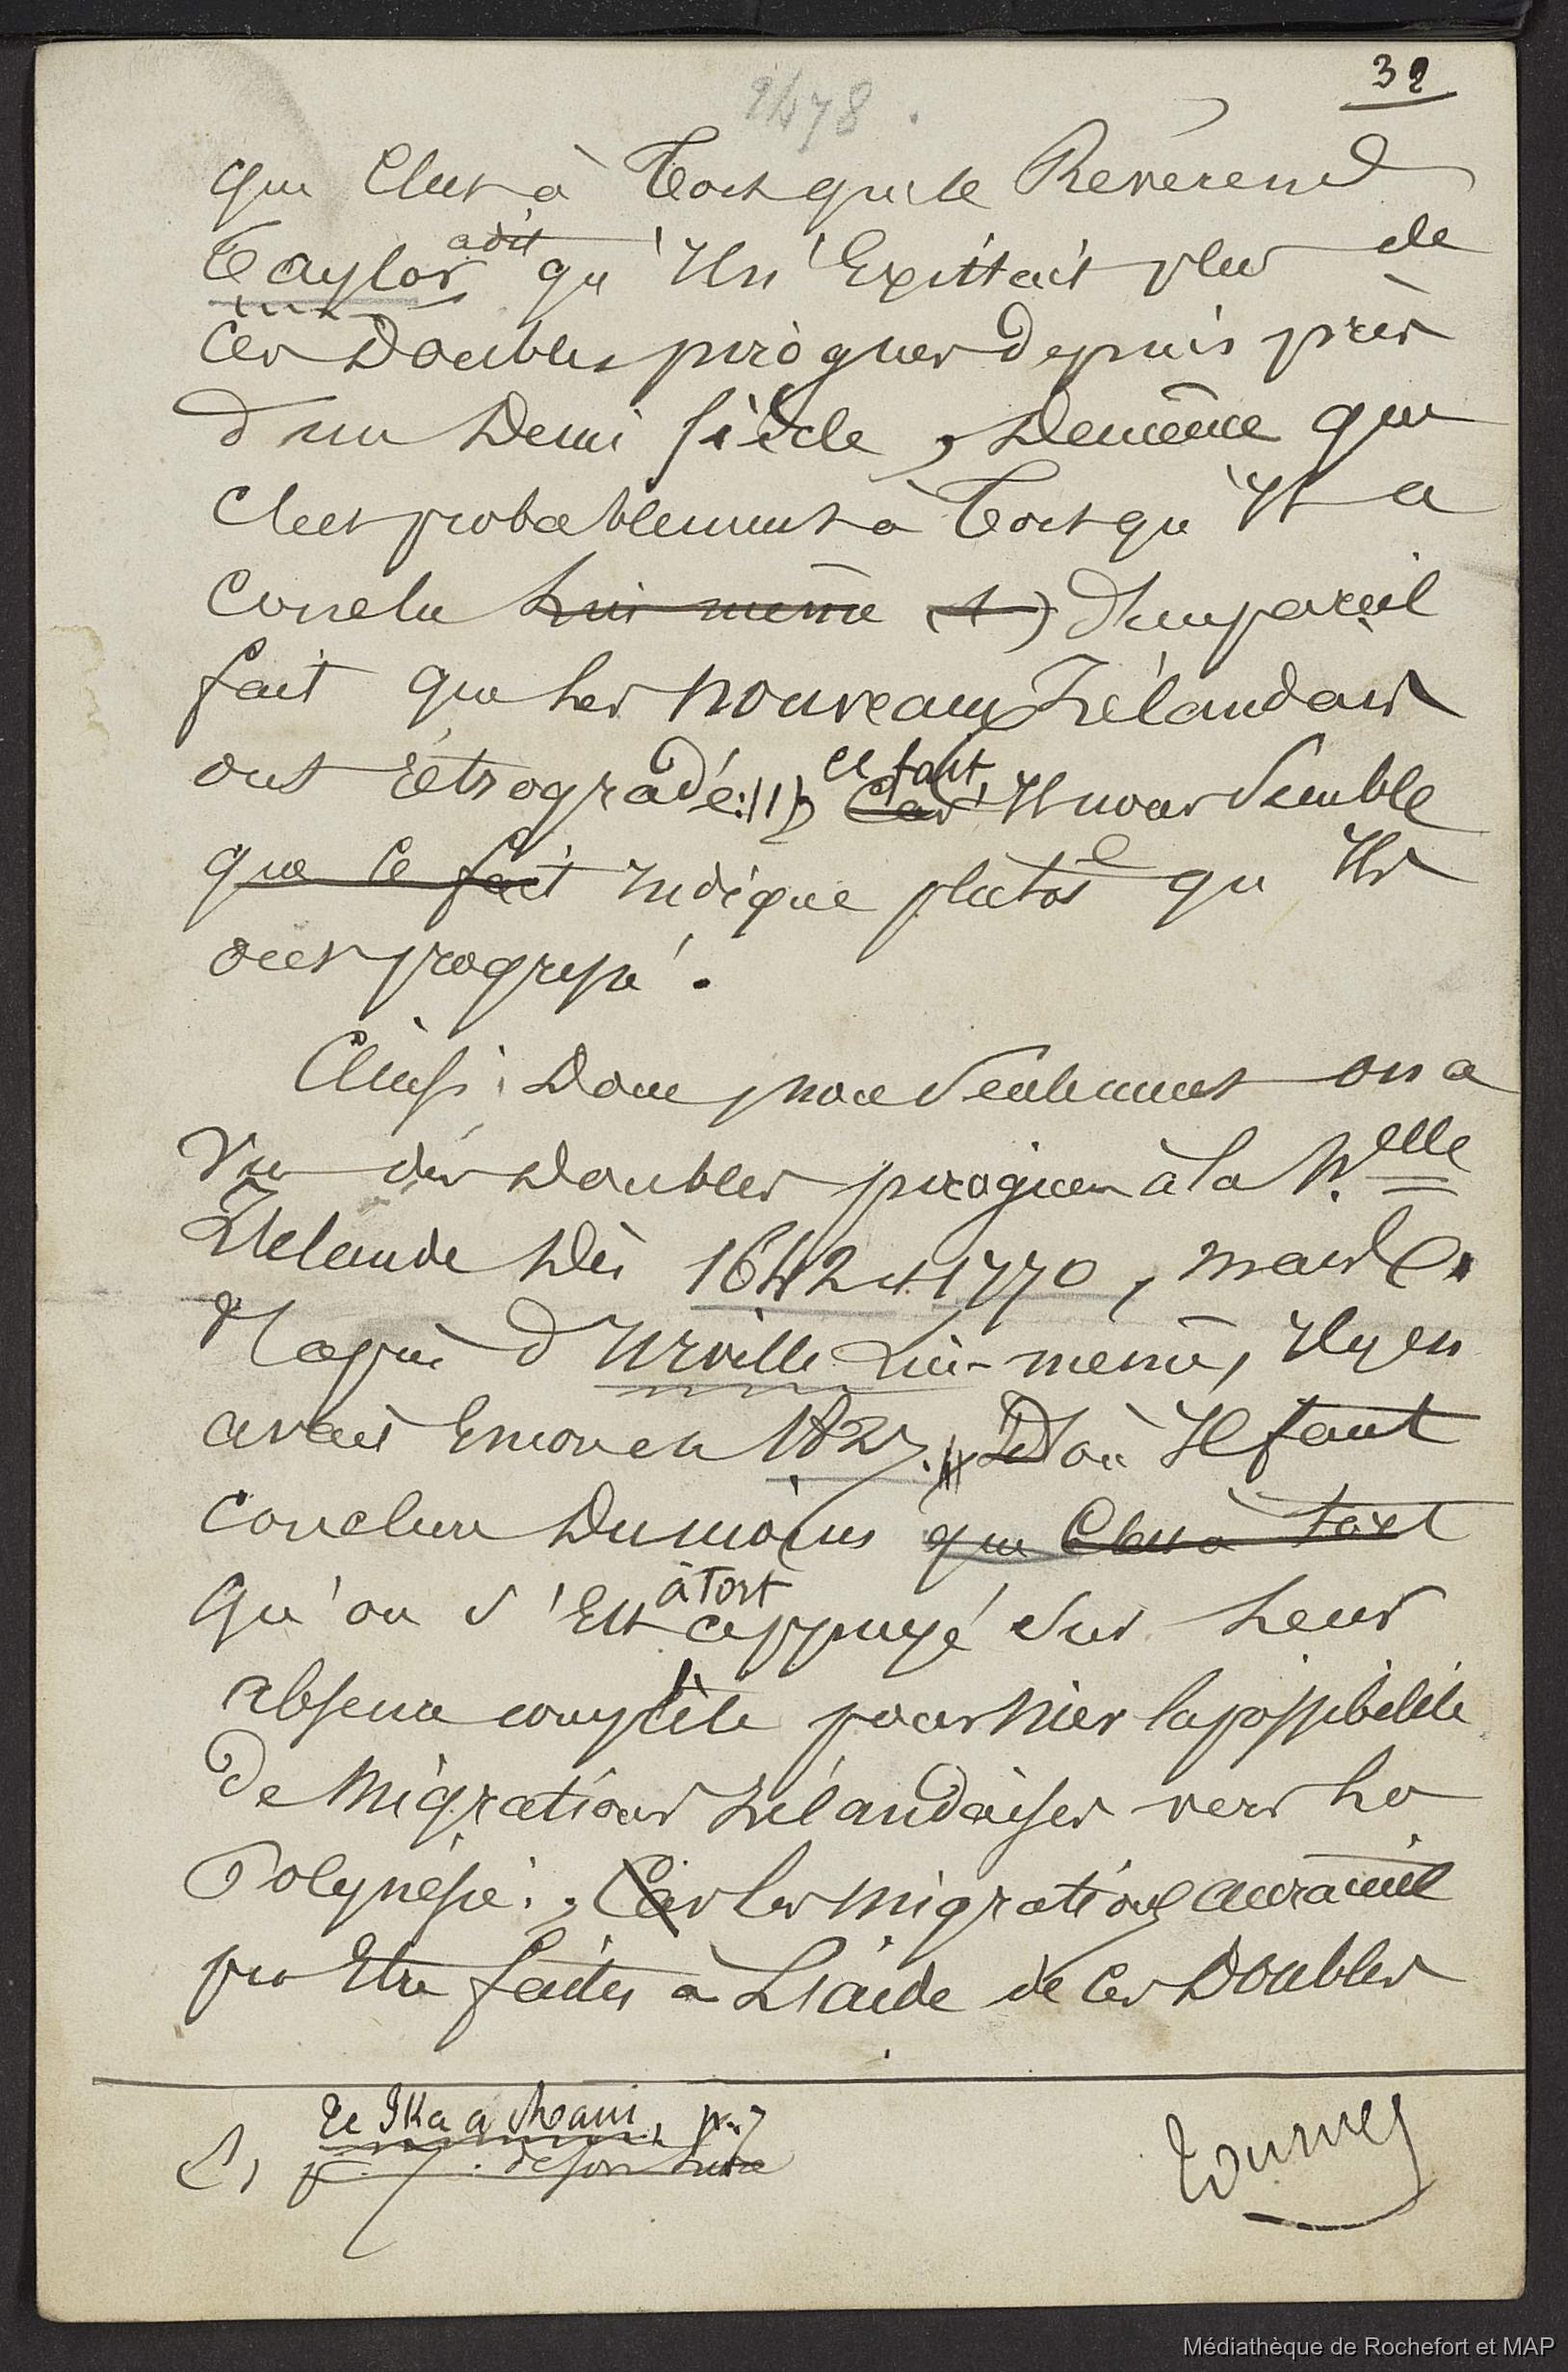 32
2478.
que C'est à Tort que le Révérend
Taylor a dit qu'Il n'Existait plus de
Ces Doubles pirogues depuis près
d'un Demi Siècle, De même que
C'est probablement à Tort qu'Il a
Conclu Lui même (1) d'un pareil
fait que Les Nouveaux Zélandais
ont Rétrogradé: (1) Car ce fait, Il nous Semble
que Ce fait Indique plutôt qu'Ils
ont progressé.
Ainsi Donc, non Seulement on a
Vu des Doubles pirogues à la N.elle
Zélande Dès 1642 et 1770, mais
d'après d'Urville Lui-même, Il y en
avait Encore en 1827. D'où Il faut
Conclure Du moins que C'est à tort
qu'on S'Est à Tort appuyé Sur Leur
absence complète pour Nier la possibilité
De Migrations Zélandaises vers La
Polynésie; Car les Migrations auraient
pu Etre faites à L'aide de Ces Doubles
(1) Te Ika a Maui, p. 7
p. 7. de son Livre
Tournez
Médiathèque de Rochefort et MAP